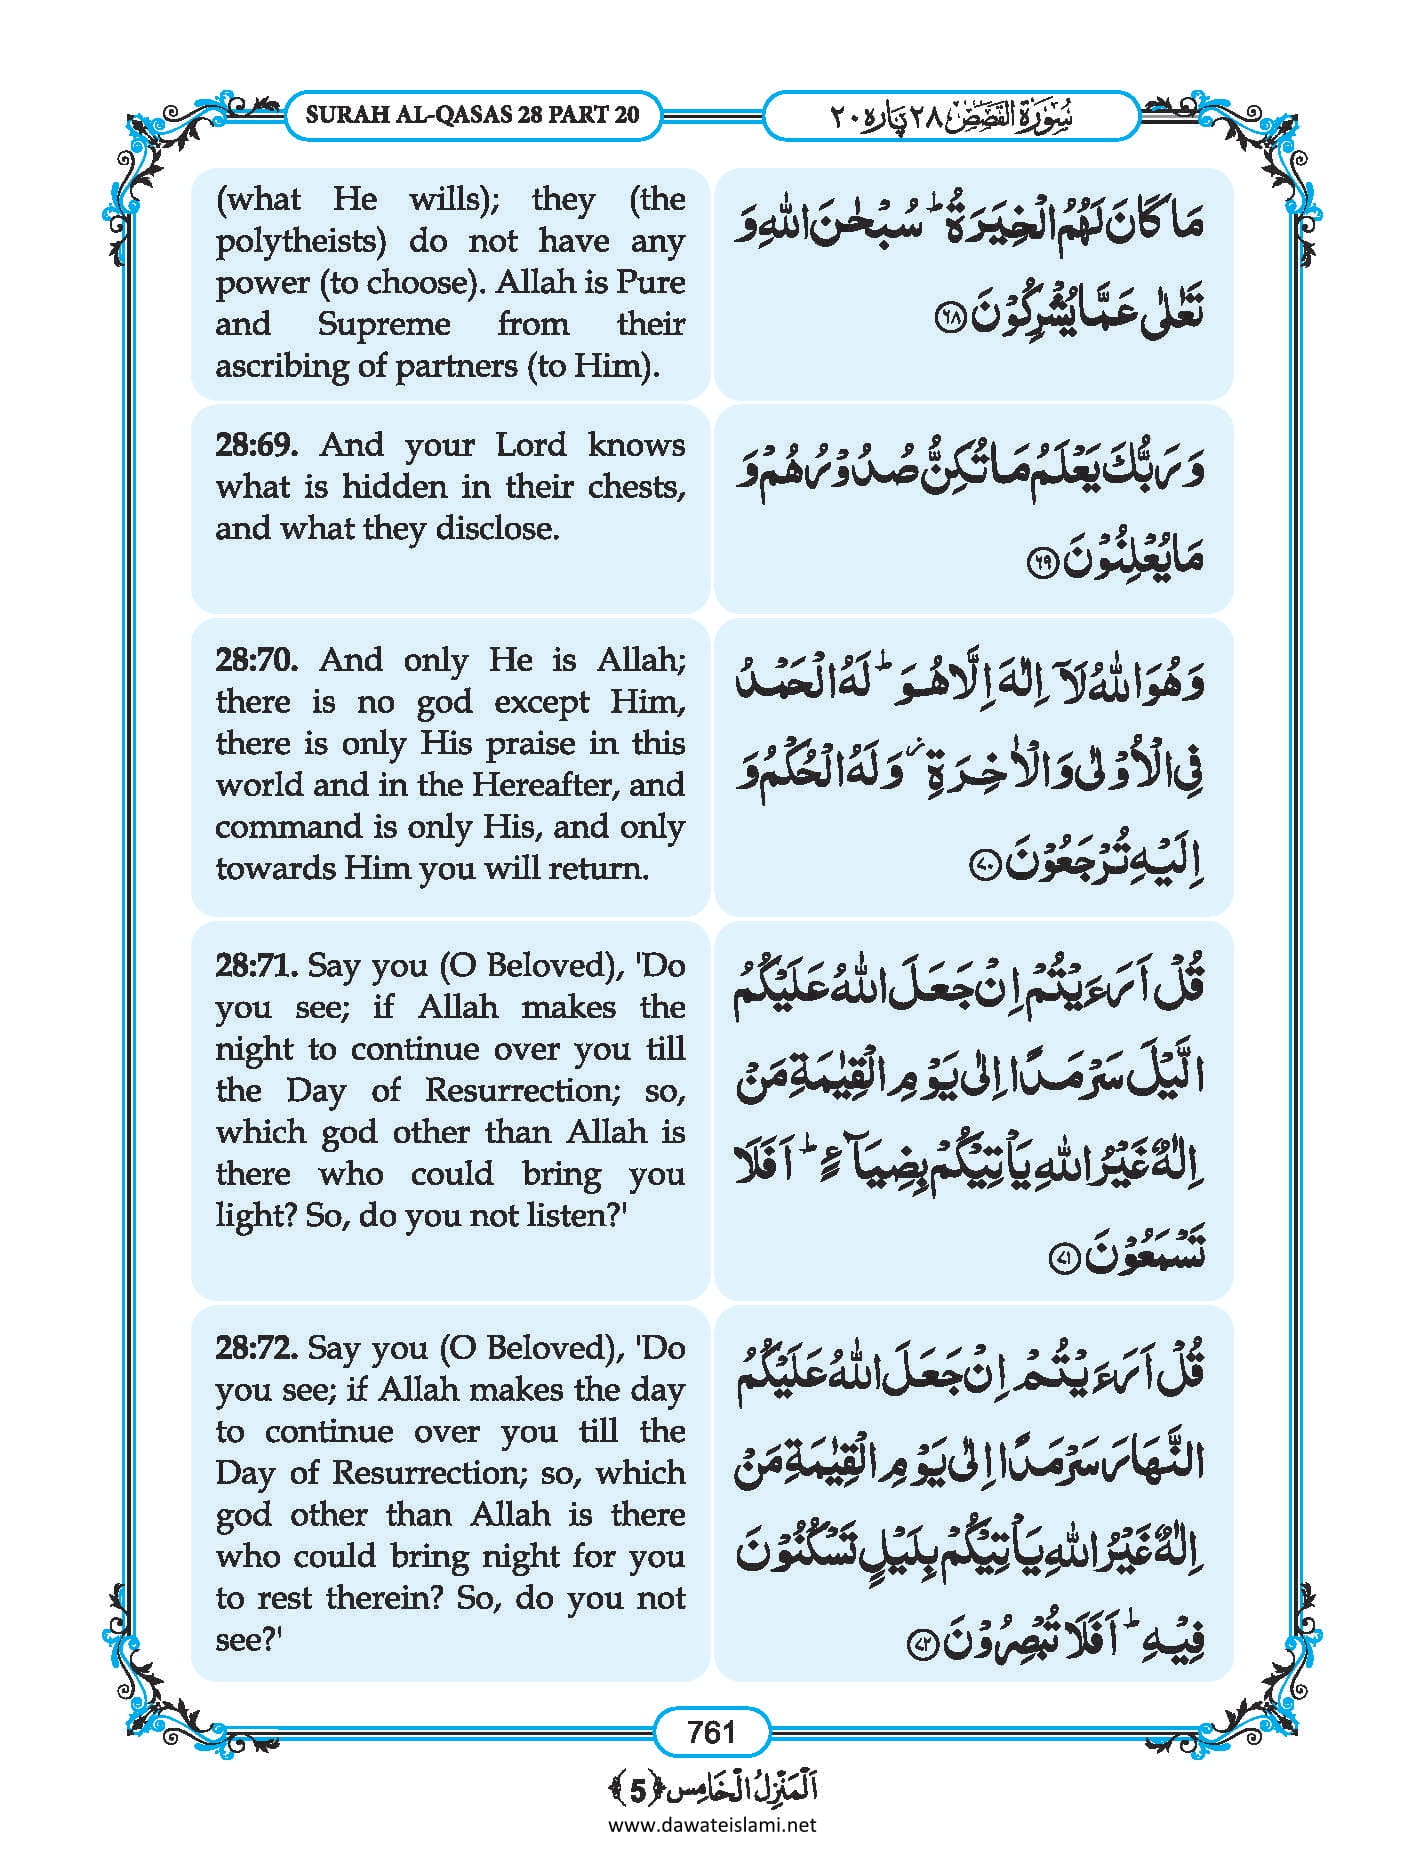 SURAH AL-QASAS 28 PART 20
سُوْرَةُ الْقَصَصِ ٢٨ پاره ٢٠
(what He wills); they (the
polytheists) do not have any
power (to choose). Allah is Pure
and Supreme from their
ascribing of partners (to Him).
مَا كَانَ لَهُمُ الْخِيَرَةُ ؕ سُبْحٰنَ اللّٰهِ وَ
تَعٰلٰى عَمَّا يُشْرِكُوْنَ ﴿۶۸﴾
28:69. And your Lord knows
what is hidden in their chests,
and what they disclose.
وَ رَبُّكَ يَعْلَمُ مَا تُكِنُّ صُدُوْرُهُمْ وَ
مَا يُعْلِنُوْنَ ﴿۶۹﴾
28:70. And only He is Allah;
there is no god except Him,
there is only His praise in this
world and in the Hereafter, and
command is only His, and only
towards Him you will return.
وَ هُوَ اللّٰهُ لَاۤ اِلٰهَ اِلَّا هُوَ ؕ لَهُ الْحَمْدُ
فِى الْاُوْلٰى وَ الْاٰخِرَةِ ۫ وَ لَهُ الْحُكْمُ وَ
اِلَيْهِ تُرْجَعُوْنَ ﴿۷۰﴾
28:71. Say you (O Beloved), 'Do
you see; if Allah makes the
night to continue over you till
the Day of Resurrection; so,
which god other than Allah is
there who could bring you
light? So, do you not listen?'
قُلْ اَرَءَيْتُمْ اِنْ جَعَلَ اللّٰهُ عَلَيْكُمُ
الَّيْلَ سَرْمَدًا اِلٰى يَوْمِ الْقِيٰمَةِ مَنْ
اِلٰهٌ غَيْرُ اللّٰهِ يَاْتِيْكُمْ بِضِيَآءٍ ؕ اَفَلَا
تَسْمَعُوْنَ ﴿۷۱﴾
28:72. Say you (O Beloved), 'Do
you see; if Allah makes the day
to continue over you till the
Day of Resurrection; so, which
god other than Allah is there
who could bring night for you
to rest therein? So, do you not
see?'
قُلْ اَرَءَيْتُمْ اِنْ جَعَلَ اللّٰهُ عَلَيْكُمُ
النَّهَارَ سَرْمَدًا اِلٰى يَوْمِ الْقِيٰمَةِ مَنْ
اِلٰهٌ غَيْرُ اللّٰهِ يَاْتِيْكُمْ بِلَيْلٍ تَسْكُنُوْنَ
فِيْهِ ؕ اَفَلَا تُبْصِرُوْنَ ﴿۷۲﴾
761
اَلْمَنْزِلُ الْخَامِس ﴿5﴾
www.dawateislami.net